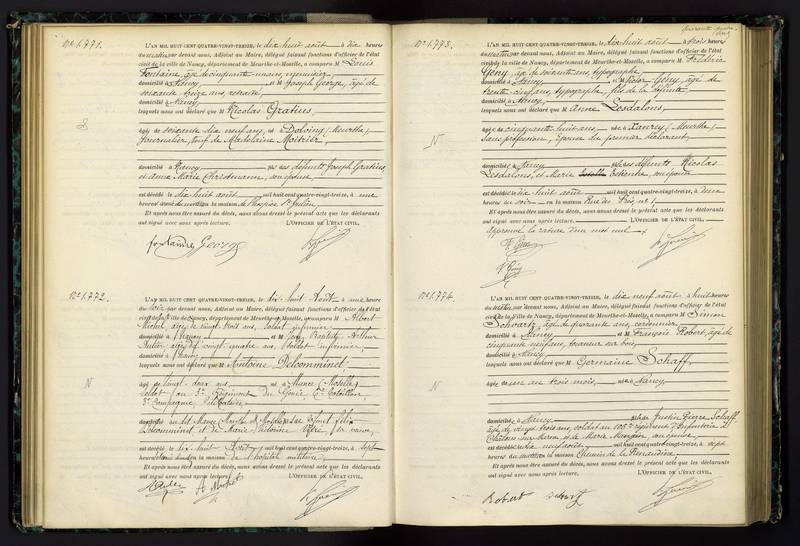 No 1.771.
L'AN MIL HUIT CENT QUATRE-VINGT-TREIZE, le dix huit août à dix heures
du matin par devant nous, Adjoint au Maire, délégué faisant fonctions d'officier de l'état
civil de la ville de Nancy, département de Meurthe-et-Moselle, a comparu M Louis
Fontaine, âgé de cinquante ans
domicilié à Nancy et M Joseph George, âgé de
soixante treize ans, retraité,
domicilié à Nancy,
lesquels nous ont déclaré que M Nicolas Gratius,
âgé de soixante dix neuf ans, né à Dolving (Meurthe),
Journalier, veuf de Madelaine Moitrier,
domicilié à Nancy fils des défunts Joseph Gratius
et Anne Marie Christmann, son épouse,
est décédé le dix huit août mil huit cent quatre-vingt-treize, à une
heure du matin en la maison de l'hospice St Julien.
Et après nous être assuré du décès, nous avons dressé le présent acte que les déclarants
ont signé avec nous après lecture. L'OFFICIER DE L'ÉTAT CIVIL,
George
No 1.772.
L'AN MIL HUIT CENT QUATRE-VINGT-TREIZE, le dix huit Août à une heure
du soir par devant nous, Adjoint au Maire, délégué faisant fonctions d'officier de l'état
civil de la ville de Nancy, département de Meurthe-et-Moselle, a comparu M Albert
Michel, âgé de vingt trois ans, soldat infirmier
domicilié à Nancy et M Jean Baptiste Arthur
âgé de vingt quatre ans, soldat infirmier,
domicilié à Nancy,
lesquels nous ont déclaré que M Antoine Delcomminet,
N
âgé de vingt deux ans né à Mance (Moselle)
soldat au Régiment du Génie Bataillon,
Compagnie, célibataire
domicilié au dit Mance fils de défunt Félix
Delcomminet et de Marie Victorine sa veuve,
est décédé le dix huit Août mil huit cent quatre-vingt-treize, à sept
heures du matin en la maison de l'hôpital militaire
Et après nous être assuré du décès, nous avons dressé le présent acte que les déclarants
ont signé avec nous après lecture. L'OFFICIER DE L'ÉTAT CIVIL,
A. Michel
No 1.773.
L'AN MIL HUIT CENT QUATRE-VINGT-TREIZE, le dix huit août à trois heures
du soir par devant nous, Adjoint au Maire, délégué faisant fonctions d'officier de l'état
civil de la ville de Nancy, département de Meurthe-et-Moselle, a comparu M Frédéric
Gény, âgé de soixante ans, typographe
domicilié à Nancy et M Victor Gény, âgé de
trente cinq ans, typographe, fils de la défunte
domicilié à Nancy,
lesquels nous ont déclaré que M Anne Lesdalons,
N
âgée de cinquante huit ans née à Xanrey (Meurthe)
Sans profession, épouse du premier déclarant,
domiciliée à Nancy fille des défunts Nicolas
Lesdalons, et Marie Etienne, son épouse
est décédée le dix huit août mil huit cent quatre-vingt-treize, à une
heure du soir en la maison Rue des Prés, no 1,
Et après nous être assuré du décès, nous avons dressé le présent acte que les déclarants
ont signé avec nous après lecture. L'OFFICIER DE L'ÉTAT CIVIL,
Approuvé la rature d'un mot nul.
V. Gény
No 1.774.
L'AN MIL HUIT CENT QUATRE-VINGT-TREIZE, le dix neuf août à huit heures
du matin par devant nous, Adjoint au Maire, délégué faisant fonctions d'officier de l'état
civil de la ville de Nancy, département de Meurthe-et-Moselle, a comparu M Simon
Schvartz, âgé de quarante ans, cordonnier
domicilié à Nancy et M François Robert, âgé de
cinquante neuf ans, graveur sur bois,
domicilié à Nancy,
lesquels nous ont déclaré que M Germaine Schaff,
N
âgée de un an trois mois, née à Nancy,
domiciliée à Nancy fille de Justin Pierre Schaff,
âgé de vingt trois ans, soldat au 105e régiment d'Infanterie à
Châlons sur Marne, et de Marie Mangin son épouse
est décédée le dix neuf août mil huit cent quatre-vingt-treize, à sept
heures du matin en la maison Chemin de la
Et après nous être assuré du décès, nous avons dressé le présent acte que les déclarants
ont signé avec nous après lecture. L'OFFICIER DE L'ÉTAT CIVIL,
Robert